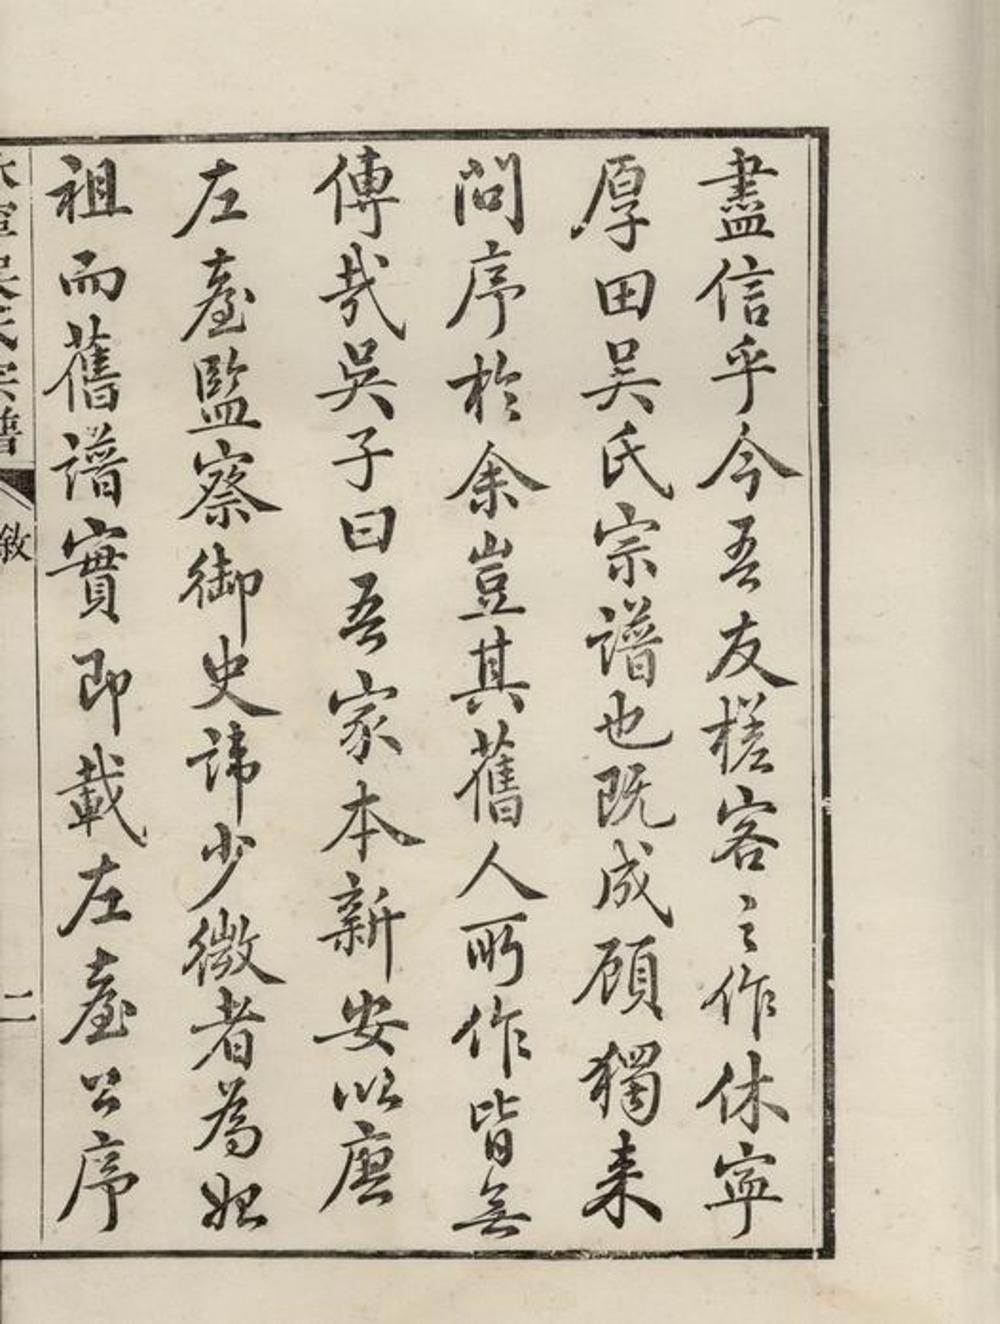 盡信乎今吾友槎客之作休寧
厚田吴氏宗譜也既成顧獨来
問序於余豈其舊人所作皆無
傳哉吳子曰吾家本新安以唐
左臺監察御史諱少微者為始
祖而舊譜實即載左臺公序
休寧吳氏宗譜
敘
二